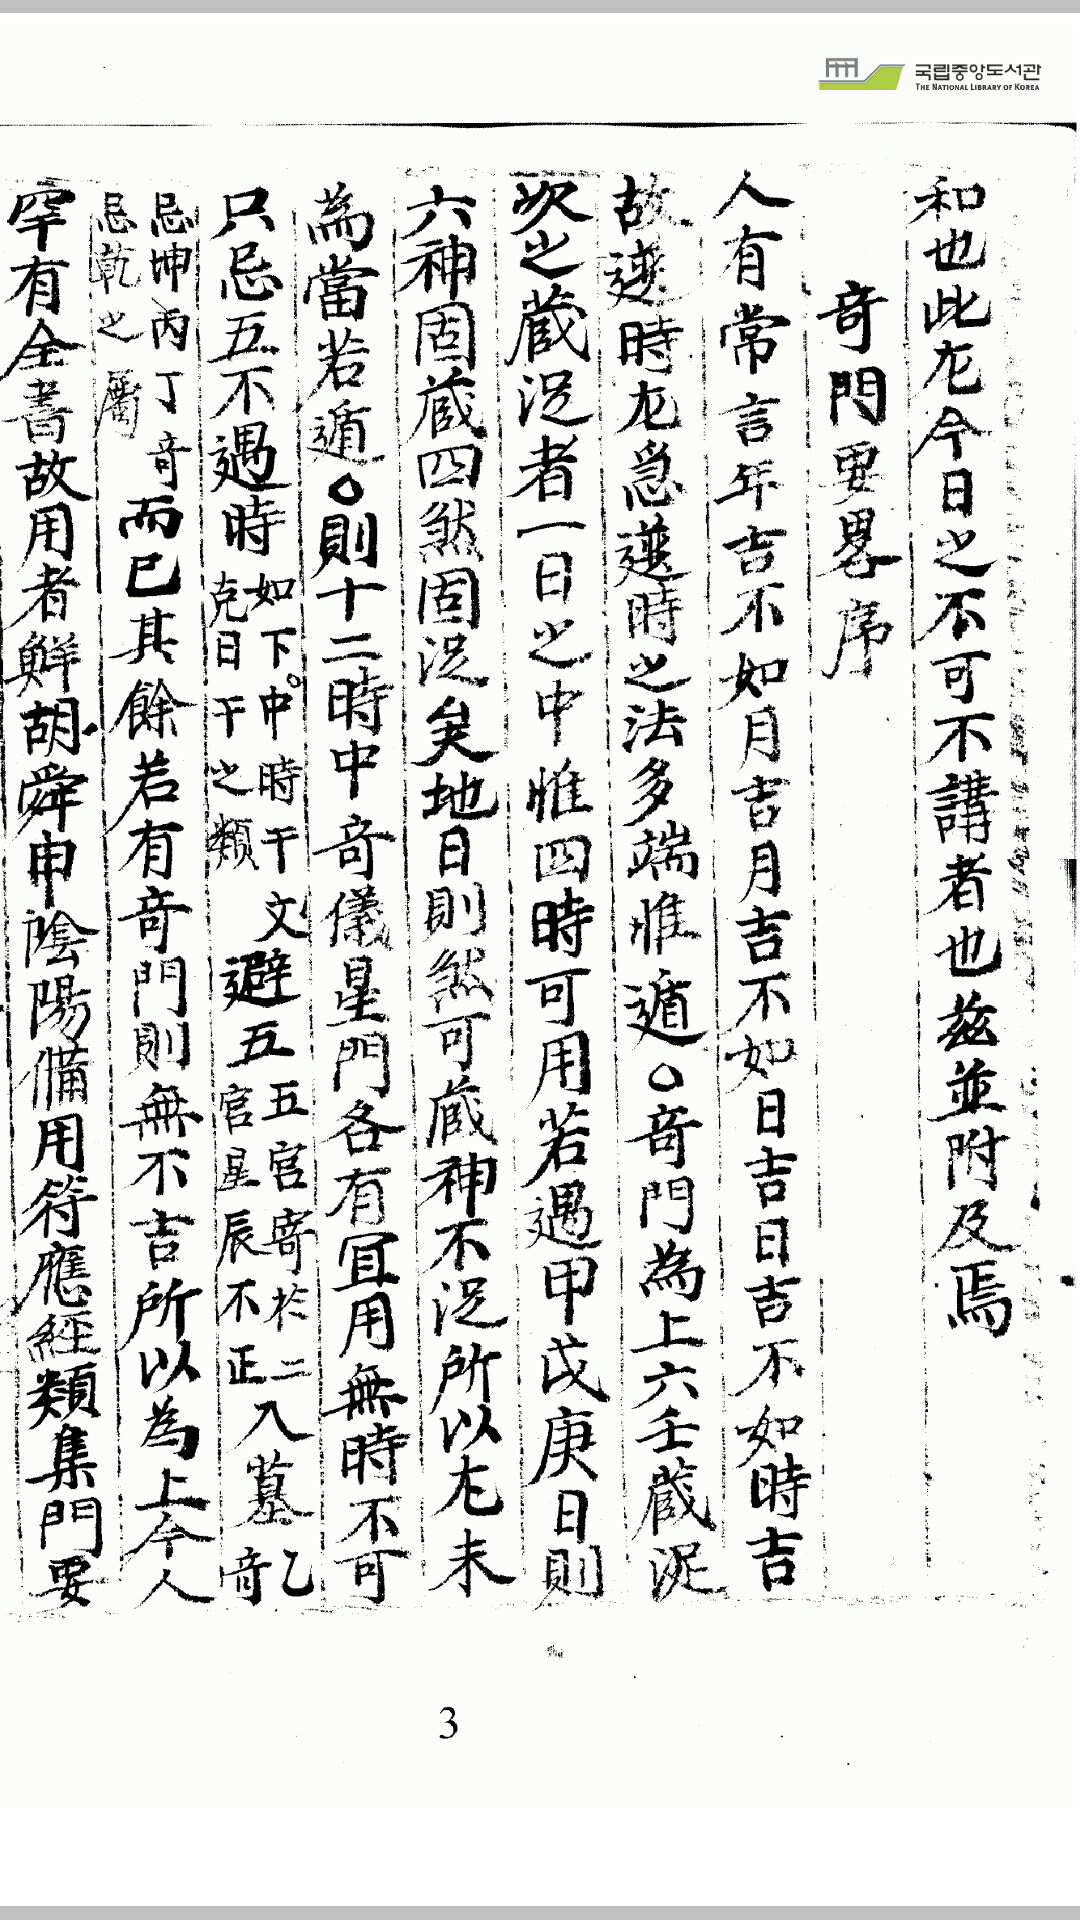 국립중앙도서관
THE NATIONAL LIBRARY OF KOREA
和也此尤今日之不可不講者也玆並附及焉
竒門要畧序
人有常言年吉不如月吉月吉不如日吉日吉不如時吉
故選時尤急選時之法多端惟遁○竒門為上六壬蔵沒
次之蔵没者一日之中惟四時可用若遇甲戊庚日則
六神固蔵四煞固没矣地日則煞可蔵神不没所以尤未
為當若遁○則十二時中竒儀星門各有冝用無時不可
只忌五不遇時如下中時干克日干之類文避五五宮寄於二官星辰不正入墓乙竒
忌坤丙丁竒忌乾之屬而已其餘若有竒門則無不吉所以為上今人
罕有全書故用者鮮胡舜申陰陽備用符應經類集門要
3